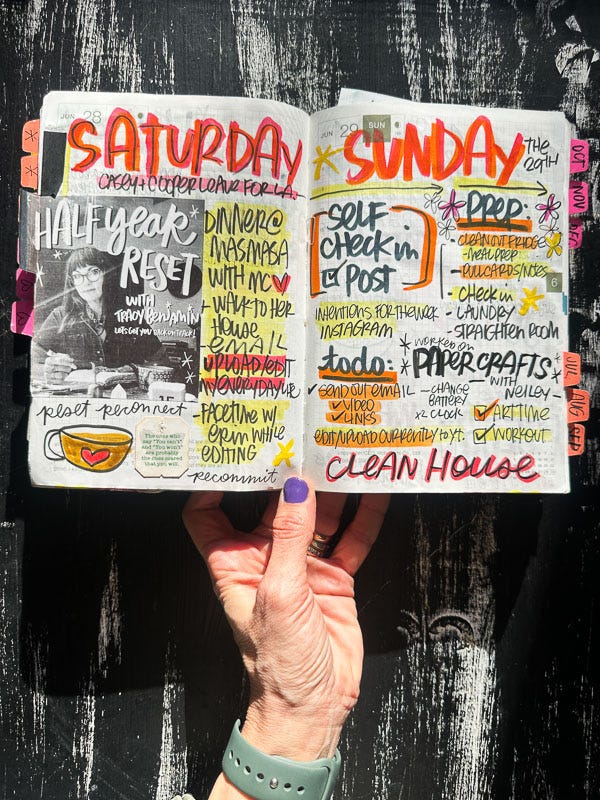 JUN 28
SATURDAY
CASEY + COOPER LEAVE FOR L.A.
HALF YEAR
RESET
WITH
TRACY BENJAMIN
LET'S GET YOU BACK ON TRACK!
RESET RECONNECT
The ones who
say "You can't"
and "You won't"
are probably
the ones scared
that you will.
DINNER @
MASMASA
WITH MC
- WALK TO HER
HOUSE
- EMAIL
UPLOAD/EDIT
MY EVERYDAY LIFE
- FACETIME W/
ERIN WHILE
EDITING
RECOMMIT
JUN 29 SUN
SUNDAY
THE
29TH
SELF
CHECK IN
POST
INTENTIONS FOR THE WEEK
INSTAGRAM
todo:
SEND OUT EMAIL
VIDEO
LINKS
- CHANGE
BATTERY
x2 CLOCK
EDIT/UPLOAD CURRENTLY TO YT.
PREP:
- CLEAN OUT FRIDGE
- MEAL PREP
- PULL CARDS/NOTES
CHECK IN
- LAUNDRY
- STRAIGHTEN ROOM
6
WORKED ON
PAPER CRAFTS
- WITH
NEILEY -
ART TIME
WORKOUT
CLEAN HOUSE
OCT
NOV
DEC
JUL
AUG
SEP